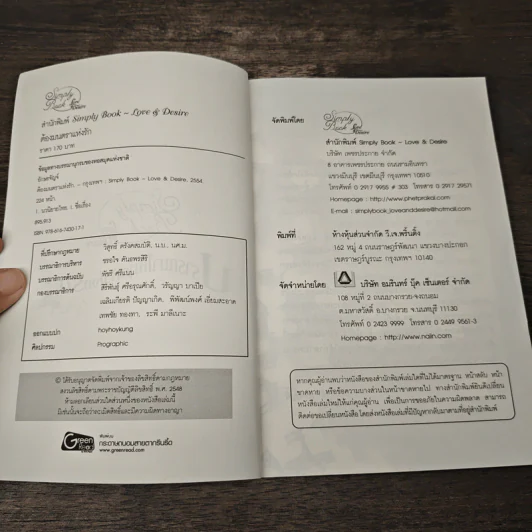 Simply Book
สำนักพิมพ์ Simply Book ~ Love & Desire
ต้องมนตราแห่งรัก
ราคา 170 บาท
ข้อมูลทางบรรณานุกรมของหอสมุดแห่งชาติ
ต้องมนตราแห่งรัก. – กรุงเทพฯ : Simply Book – Love & Desire, 2554.
หน้า.
1. นวนิยายไทย. I. ชื่อเรื่อง.
895.913
ISBN
ที่ปรึกษากฎหมาย
บรรณาธิการบริหาร
บรรณาธิการต้นฉบับ
กองบรรณาธิการ
ออกแบบปก hoyhoykung
ศิลปกรรม Prographic
© ได้รับอนุญาตจัดพิมพ์จากเจ้าของลิขสิทธิ์ตามกฎหมาย
สงวนลิขสิทธิ์ตามพระราชบัญญัติลิขสิทธิ์ พ.ศ. 2548
ห้ามลอกเลียนส่วนใดส่วนหนึ่งของหนังสือเล่มนี้
มิเช่นนั้นจะถือว่าละเมิดสิทธิ์และมีความผิดทางอาญา
Green Read
กระดาษถนอมสายตากรีนรีด
www.greenread.com
จัดพิมพ์โดย
Simply Book
สำนักพิมพ์ Simply Book – Love & Desire
บริษัท เพชรประกาย จำกัด
แขวงมีนบุรี เขตมีนบุรี กรุงเทพฯ 10510
โทรศัพท์ 0 2917 9955 # 303 โทรสาร 0 2917 29571
Homepage : http://www.phetprakai.com
E-mail : simplybook_loveanddesire@hotmail.com
พิมพ์ที่ ห้างหุ้นส่วนจำกัด วี.เจ.พริ้นติ้ง
162 หมู่ 4 ถนนราษฎร์พัฒนา แขวงบางปะกอก
เขตราษฎร์บูรณะ กรุงเทพฯ 10140
จัดจำหน่ายโดย บริษัท อมรินทร์ บุ๊ค เซ็นเตอร์ จำกัด
108 หมู่ที่ 2 ถนนบางกรวย-จงถนอม
ต.มหาสวัสดิ์ อ.บางกรวย จ.นนทบุรี 11130
โทรศัพท์ 0 2423 9999 โทรสาร 0 2449 9561-3
Homepage : http://www.naiin.com
หากคุณผู้อ่านพบว่าหนังสือของสำนักพิมพ์เล่มใดที่ไม่ได้มาตรฐาน หน้าสลับ หน้า
ขาดหาย หรือข้อความบางส่วนในหน้าขาดหายไป ทางสำนักพิมพ์ยินดีเปลี่ยน
หนังสือเล่มใหม่ให้แก่คุณผู้อ่าน เพื่อเป็นการขออภัยในความผิดพลาด สามารถ
ติดต่อขอเปลี่ยนหนังสือ โดยส่งหนังสือเล่มที่มีปัญหากลับมาตามที่อยู่สำนักพิมพ์